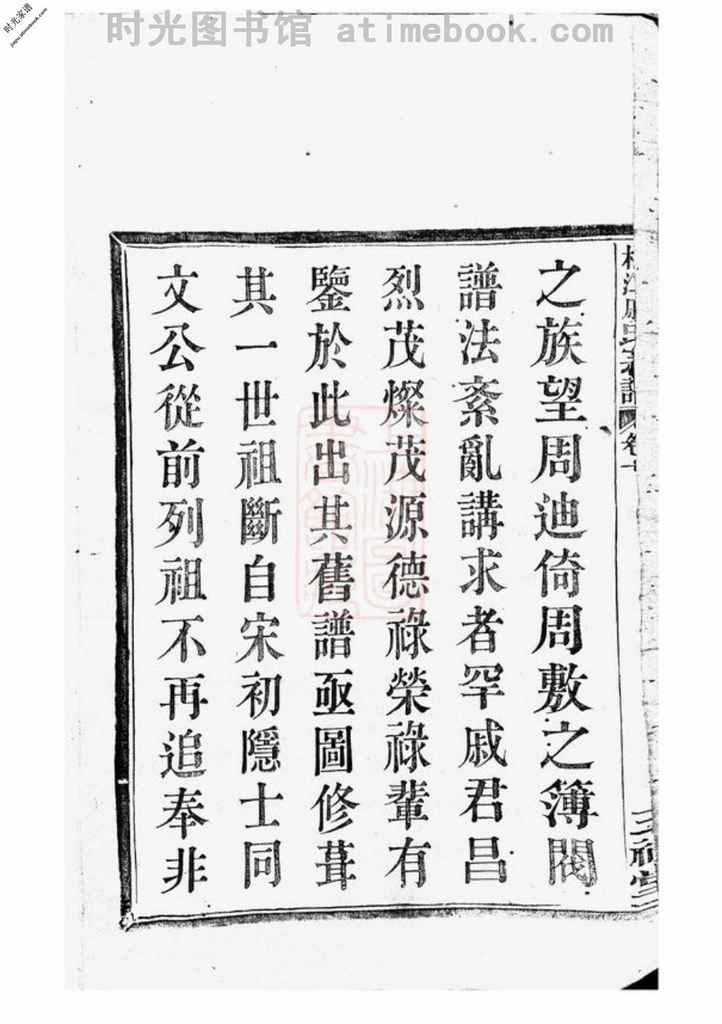 时光家谱
jiapu.atimebook.com
时光图书馆 atimebook.com
之族望周迪倚周敷之簿閥
譜法紊亂講求者罕戚君昌
烈茂燦茂源德祿榮祿輩有
鑒於此出其舊譜亟圖修葺
其一世祖斷自宋初隱士同
文公從前列祖不再追奉非